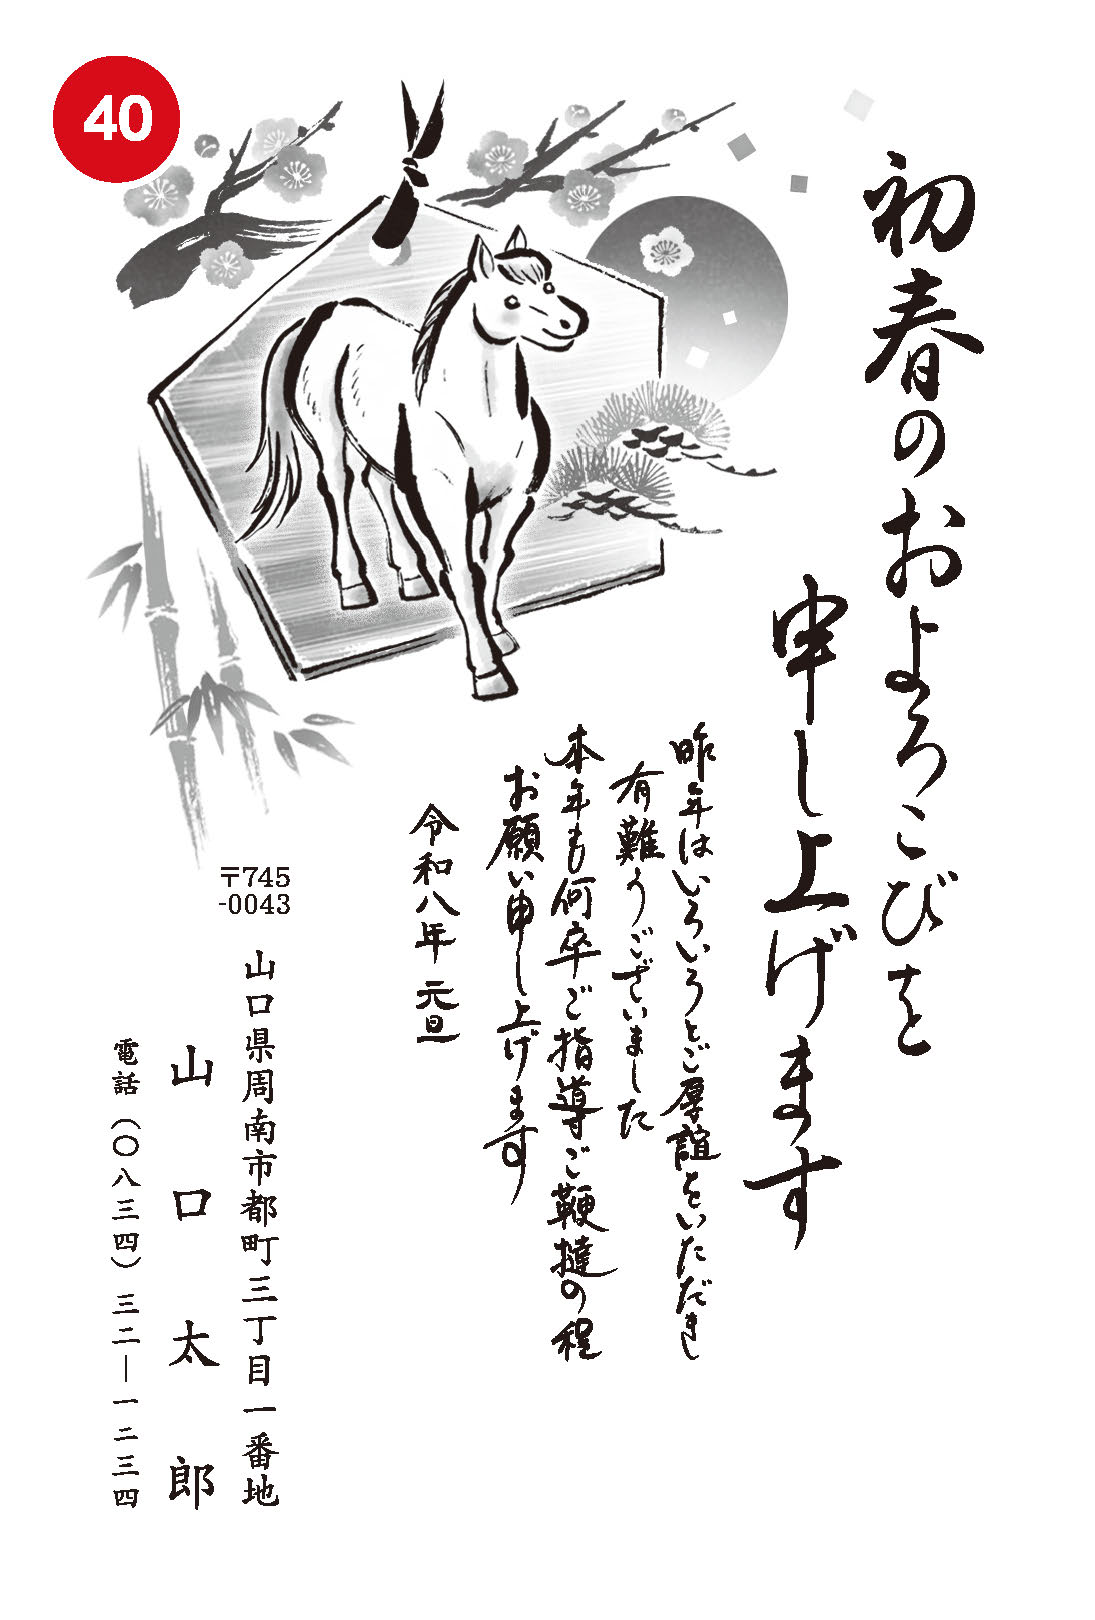 40
初春のおよろこびを
申し上げます
昨年はいろいろとご厚誼をいただき
有難うございました
本年も何卒ご指導ご鞭撻の程
お願い申し上げます
令和八年 元旦
〒745
-0043
山口県周南市都町三丁目一番地
山口太郎
電話(〇八三四)三二―一二三四